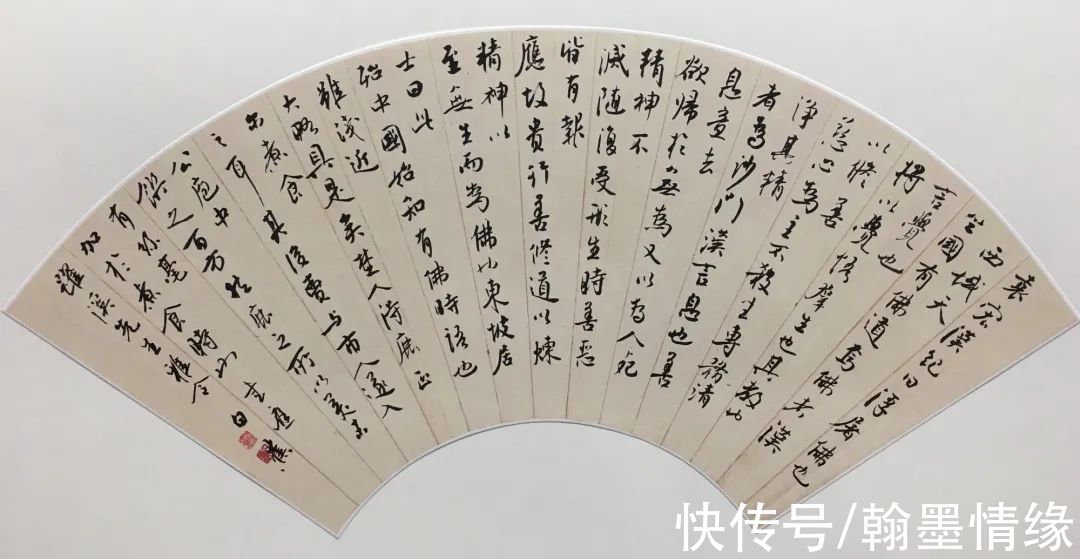 袁宏漢紀曰浮屠佛也
西域天
竺國有佛道焉佛者漢
言覺也
將以覺悟羣生也其教也
以修善
慈心為主不殺生專務清
淨其精
者為沙門漢言息也善
息意去
欲歸於無為又以為人死
精神不
滅隨復受形生時善惡
皆有報
應故貴行善修道以煉
精神以
至無生而為佛也東坡居
士曰此
殆中國始知有佛時語也
雖淺近
大略具是矣野人得鹿正
爾煮食
之耳其後賣與市人遂入
公庖中
饌之百方然鹿之所以美未
有絲毫
加於煮食時
耀溪先生雅令
快传号/翰墨情缘